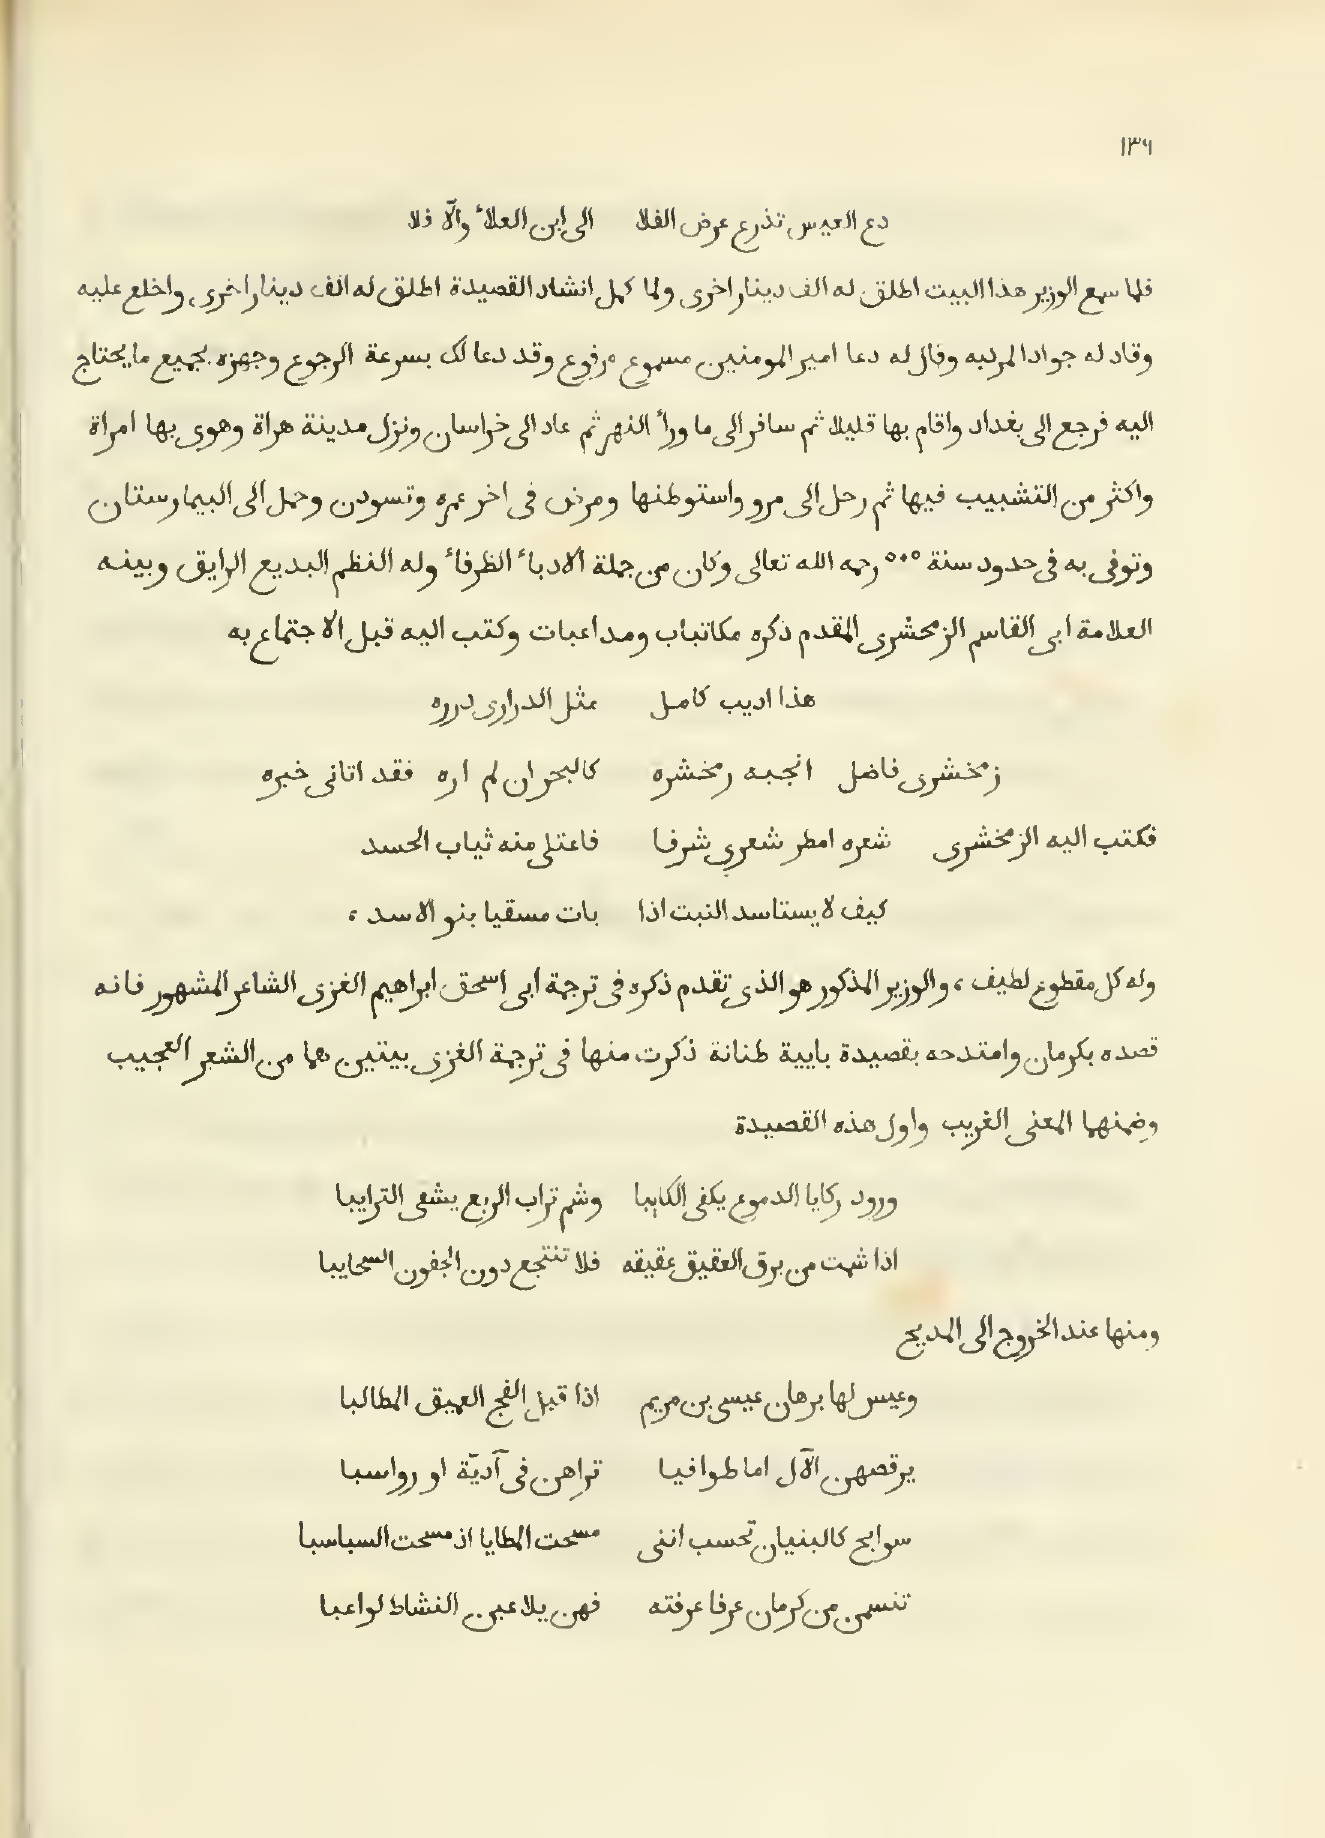 ١٣٦
دع العيس تذرع عرض الفلا الى ابن العلاء والّا فلا
فلما سمع الوزير هذا البيت اطلق له الف دينار اخرى ولما كمل انشاد القصيدة اطلق له الف دينار اخرى واخلع عليه
وقاد له جوادا لمركبه وقال له دعا امير المومنين مسموع مرفوع وقد دعا لك بسرعة الرجوع وجهزه بجميع ما يحتاج
اليه فرجع الى بغداد واقام بها قليلا ثم سافر الى ما وراء النهر ثم عاد الى خراسان ونزل مدينة هراة وهوى بها امراة
واكثر من التشبيب فيها ثم رحل الى مرو واستوطنها ومرض فى اخر عمره وتسودن وحمل الى البيمارستان
وتوفى به فى حدود سنة ٥٠٠ رحمه الله تعالى وكان من جملة الادباء الظرفاء وله النظم البديع الرايق وبينه
العلامة ابى القاسم الزمخشرى المقدم ذكره مكاتباب ومداعبات وكتب اليه قبل الاجتماع به
هذا اديب كامل مثل الدرارى درره
زمخشرى فاضل انجبه زمخشره كالبحر ان لم اره فقد اتانى خبره
فكتب اليه الزمخشرى شعره امطر شعرى شرفا فاعتلى منه ثياب الحسد
كيف لا يستاسد النبت اذا بات مسقيا بنو الاسد ،
وله كل مقطوع لطيف ، والوزير المذكور هو الذى تقدم ذكره فى ترجمة ابى اسحق ابراهيم الغزى الشاعر المشهور فانه
قصده بكرمان وامتدحه بقصيدة بايية طنانة ذكرت منها فى ترجمة الغزى بيتين هما من الشعر العجيب
وضمنهما المعنى الغريب واول هذه القصيدة
ورود ركايا الدموع يكفى الكايبا وشم تراب الربع يشفى الترايبا
اذا شمت من برق العقيق عقيقه فلا تنتجع دون الجفون السحايبا
ومنها عند الخروج الى المديح
وعيس لها برهان عيسى بن مريم اذا قبل الفج العميق المطالبا
يرقصهن الآل اما طوافيا تراهن فى آديّة او رواسبا
سوابح كالبنيان تحسب اننى مسحت المطايا اذ مسحت السباسبا
تنسمن من كرمان عرفا عرفته فهن يلاعبن النشاط لواعبا